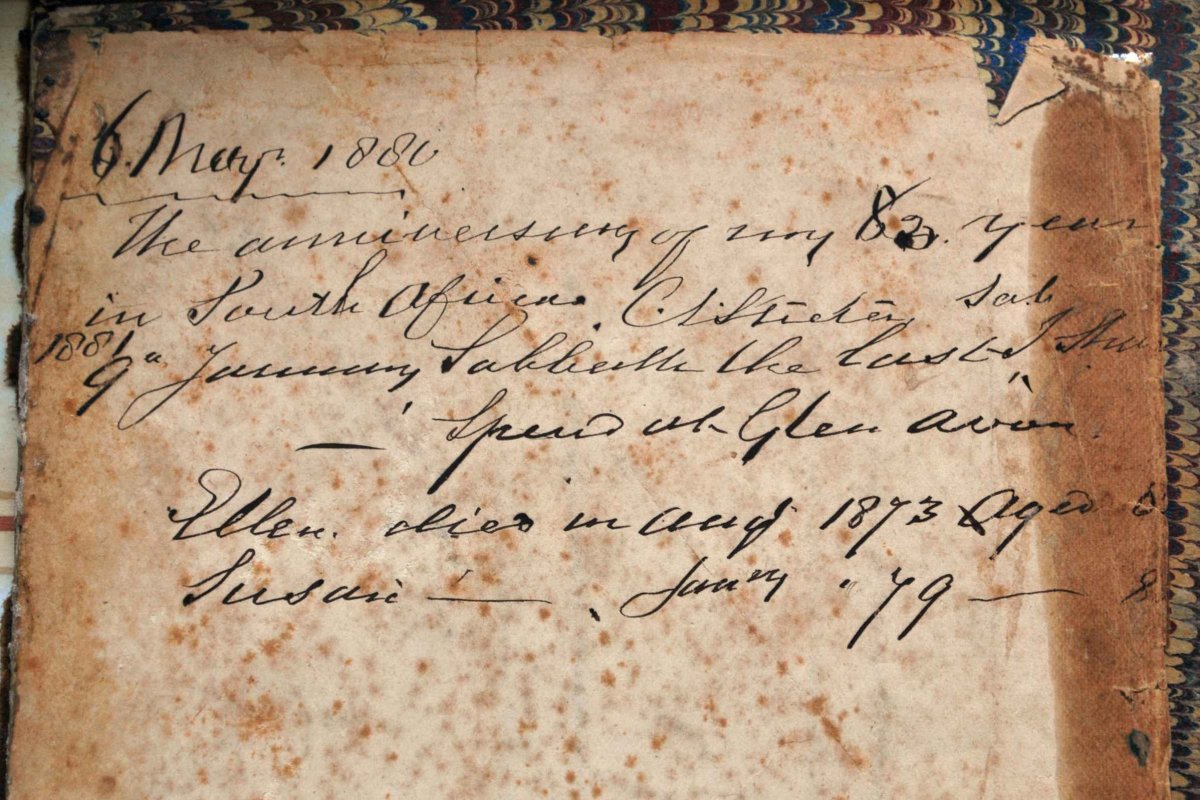 6. May. 1880
The anniversary of my year
in South Africa.
1881
9 January Sabbath the last I
— Spend at Glen Avon.
Ellen. died in Augt 1873 Aged
Susan — Jany " 79 — 8